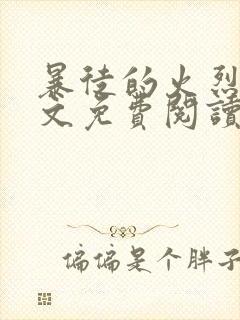 暴徒的火烈
文免費閱讀
偏偏是个胖子